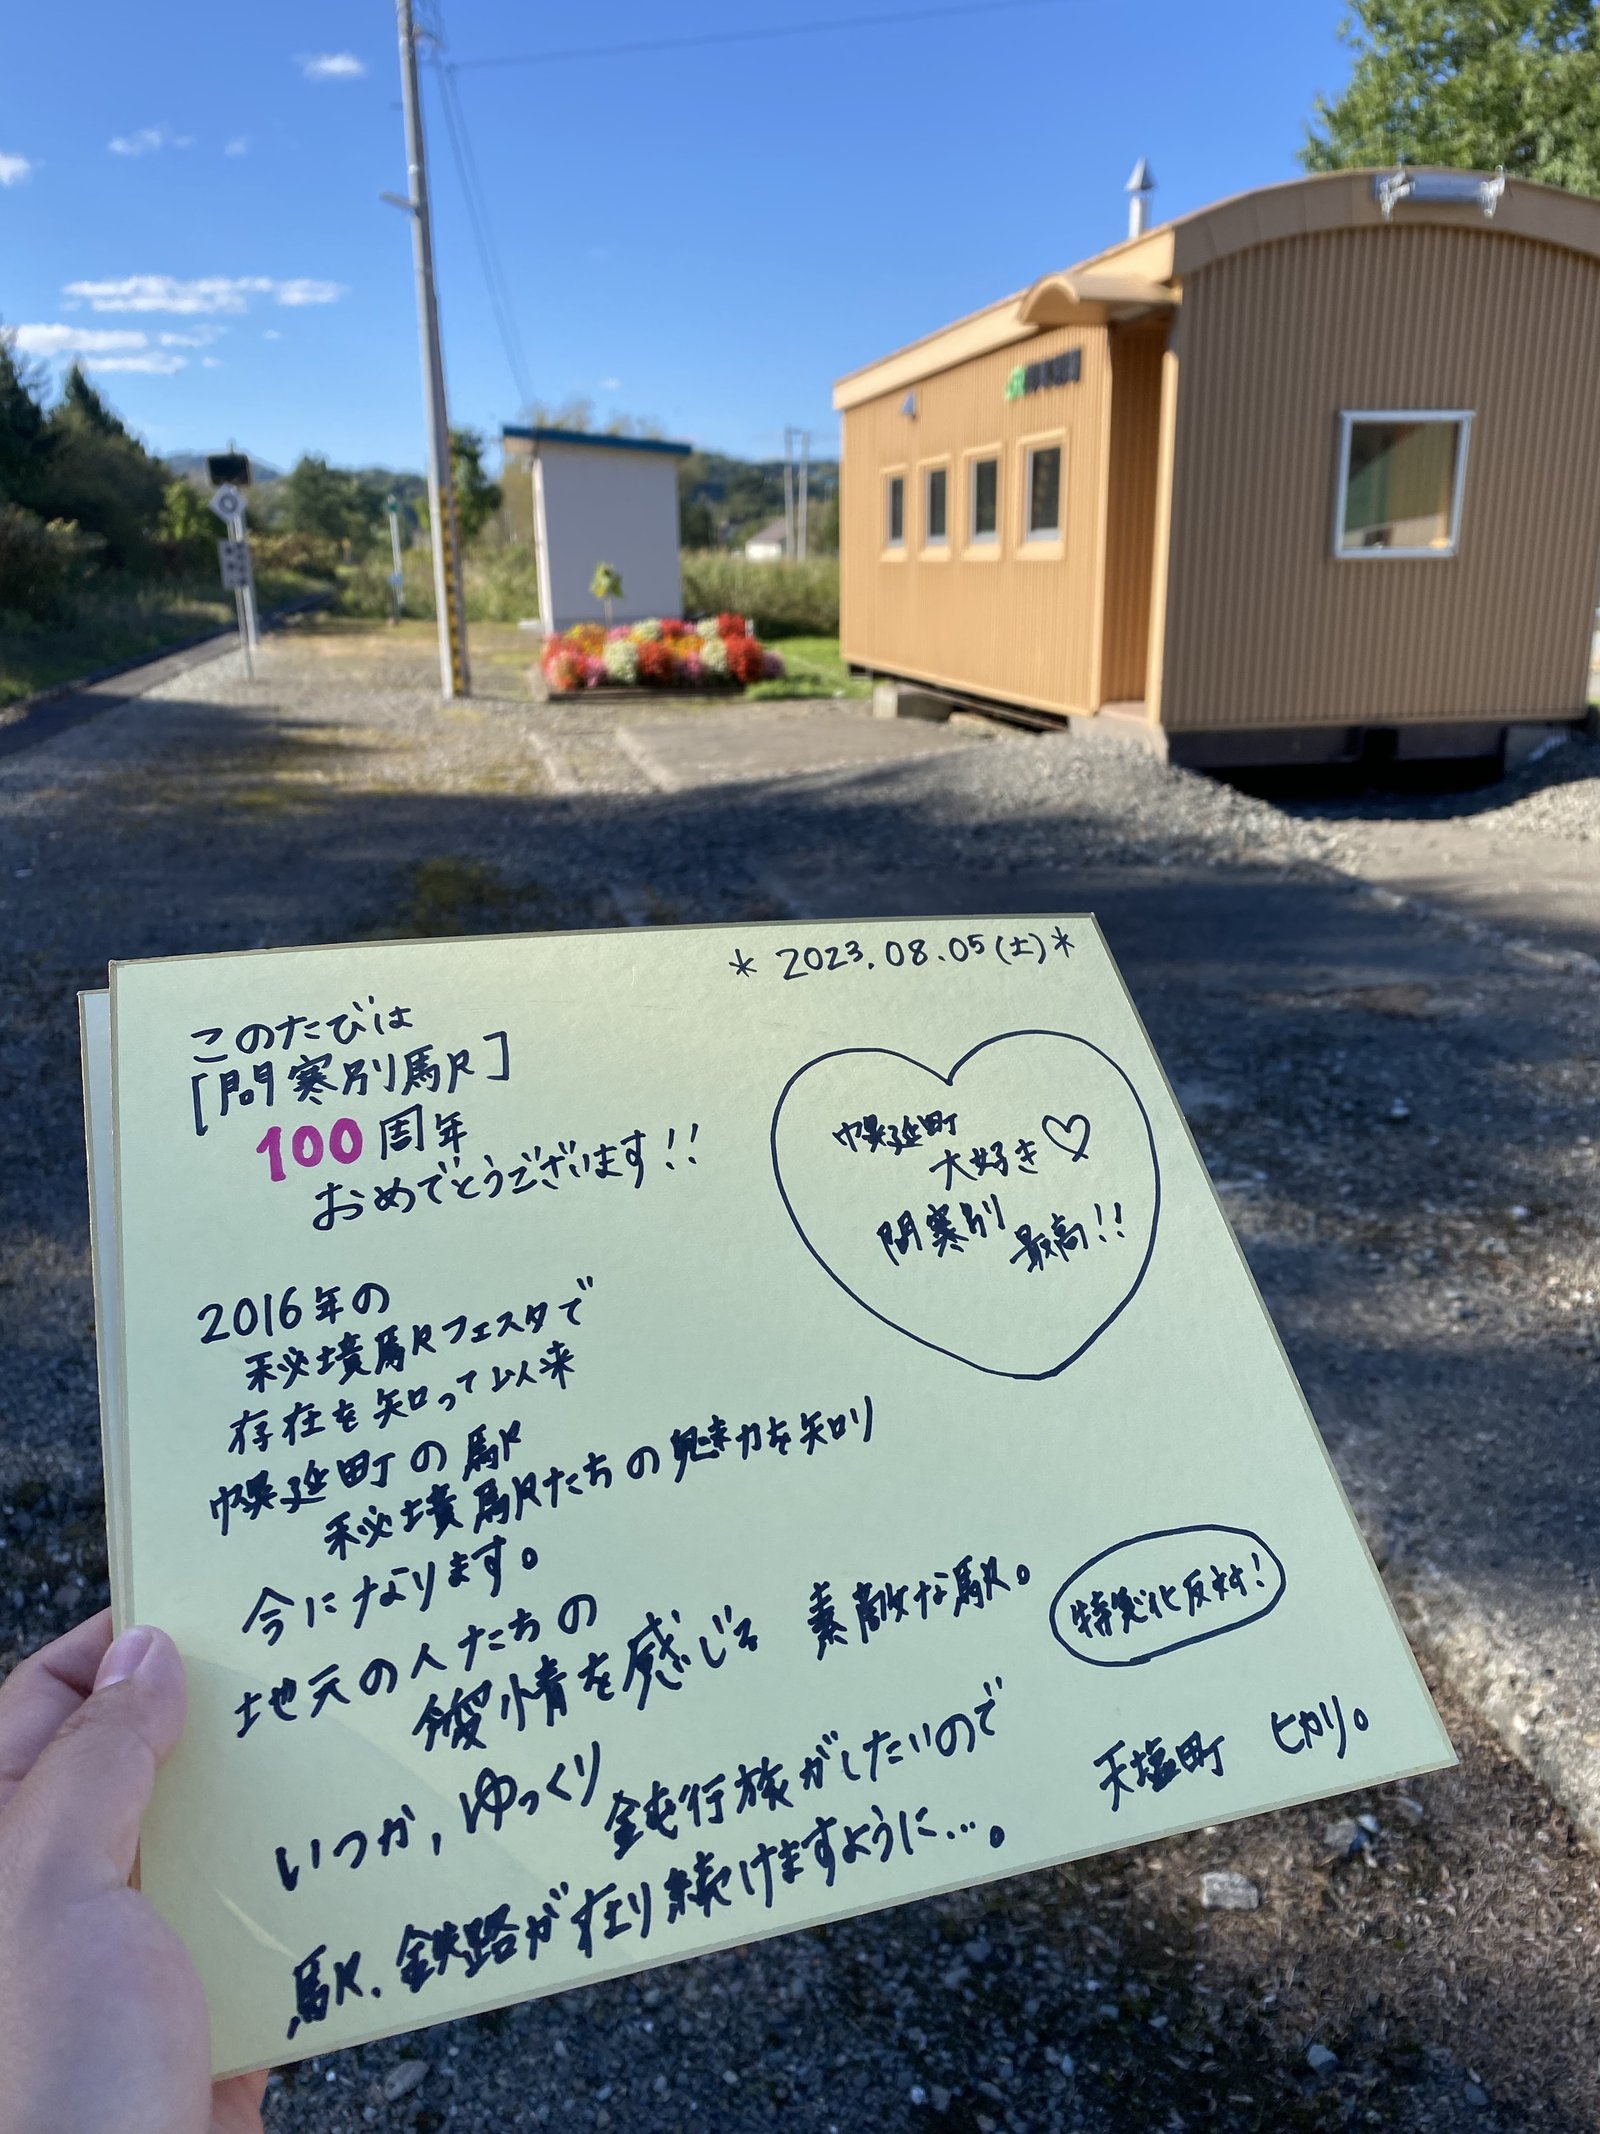 * 2023.08.05(土)*
このたびは
[問寒別駅]
100周年
おめでとうございます!!
幌延町
大好き♡
問寒別
最高!!
2016年の
秘境駅フェスタで
存在を知って以来
幌延町の駅
秘境駅たちの魅力を知り
今になります。
地元の人たちの
愛情を感じる 素敵な駅。
反対!
いつか,ゆっくり
鈍行旅がしたいので
駅.鉄路が在り続けますように…。
天塩町 ヒカリ。